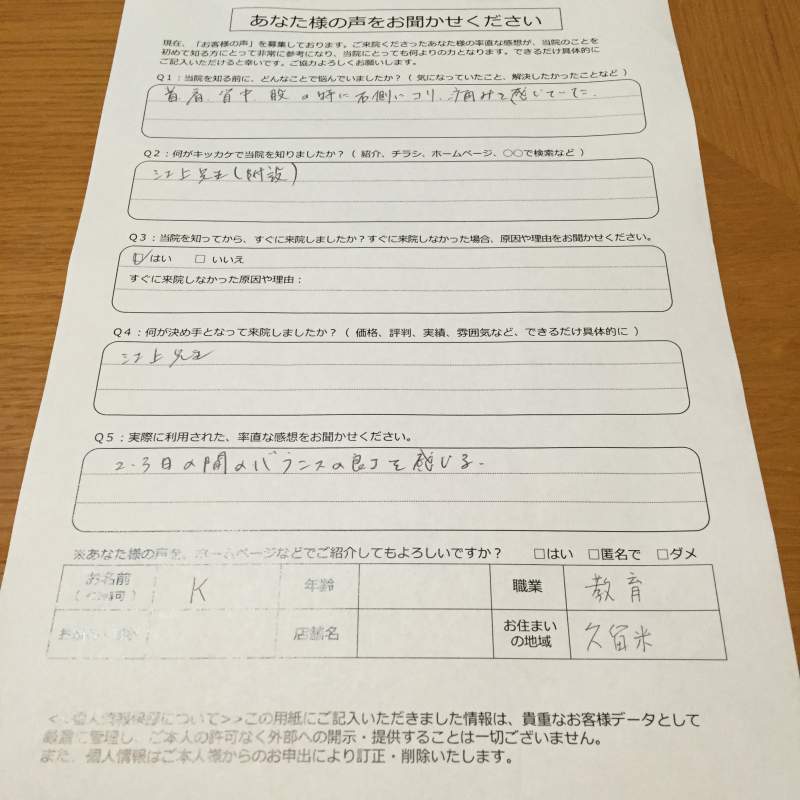 あなた様の声をお聞かせください
現在、「お客様の声」を募集しております。ご来院くださったあなた様の率直な感想が、当院のことを
初めて知る方にとって非常に参考になり、当院にとっても何よりの力となります。できるだけ具体的に
ご記入いただけると幸いです。ご協力よろしくお願いします。
Q1：当院を知る前に、どんなことで悩んでいましたか？（ 気になっていたこと、解決したかったことなど ）
首、肩、背中、腰の特に右側にコリ、痛みを感じていた。
Q2：何がキッカケで当院を知りましたか？（ 紹介、チラシ、ホームページ、〇〇で検索など ）
江上先生（附設）
Q3：当院を知ってから、すぐに来院しましたか？すぐに来院しなかった場合、原因や理由をお聞かせください。
☑はい □ いいえ
すぐに来院しなかった原因や理由：
Q4：何が決め手となって来院しましたか？（ 価格、評判、実績、雰囲気など、できるだけ具体的に ）
江上先生
Q5：実際に利用された、率直な感想をお聞かせください。
2、3日の間のバランスの良さを感じる。
※あなた様の声を、ホームページなどでご紹介してもよろしいですか？ □はい □匿名で □ダメ
お名前 K 年齢 職業 教育
店舗名 お住まい 久留米
の地域
＜＜個人情報保護について＞＞この用紙にご記入いただきました情報は、貴重なお客様データとして
厳重に管理し、ご本人の許可なく外部への開示・提供することは一切ございません。
また、個人情報はご本人様からのお申出により訂正・削除いたします。